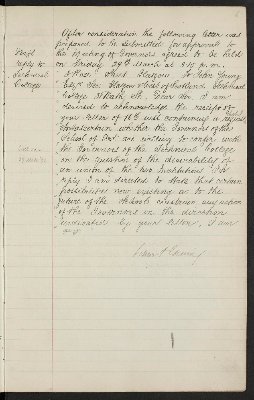 After consideration the following letter was
prepared to be submitted for approval to
the Meeting of Governors agreed to be held
on Friday 29th March at 3.15 p.m.
Draft
reply to
Technical
College
Glasgow
Glasgow & West of Scotland Technical
College Bath St Dear Sir, I am
desired to acknowledge the receipt of
your letter of conveying a
to ascertain whether the Governors of the
School of Art are willing to confer with
the Governors of the Technical College
on the question of the desirability of
an union of the two Institutions. In
reply I am directed to state that certain
possibilities now existing as to the
future of the School any action
of the Governors in the direction
indicated by your letter, I am